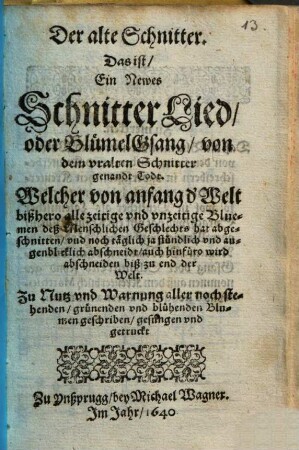 13
Der alte Schnitter.
Das ist/
Ein Newes
Schnitter Lied/
oder Blümel Gsang/ von
dem vralten Schnitter
genandt Todt.
Welcher von anfang d' Welt
bißhero alle zeitige vnd vnzeitige Blue-
men deß Menschlichen Geschlechts hat abge-
schnitten/ vnd noch täglich ja stündlich vnd au-
genblicklich abschneidt/ auch hinfüro wird
abschneiden biß zu end der
Welt.
Zu Nutz vnd Warnung aller noch ste-
henden/ grünenden vnd blühenden Blu-
men geschriben/ gesungen vnd
getruckt
Zu Ynßprugg/ bey Michael Wagner.
Im Jahr/ 1640